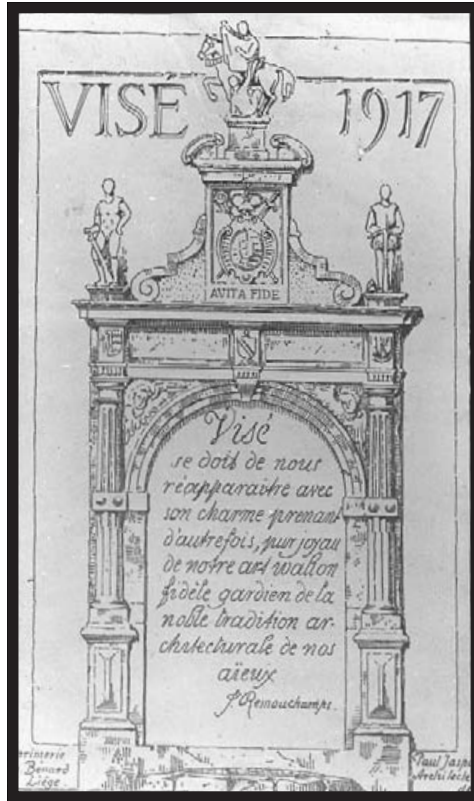 VISE 1917
AVITA FIDE
Visé
se doit de nous
réapparaitre avec
son charme prenant
d'autrefois, pur joyau
de notre art wallon
fidèle gardien de la
noble tradition ar-
chitecturale de nos
aïeux
J. Remouchamps.
Bénard
Liège.
Paul Jasp
Architecte